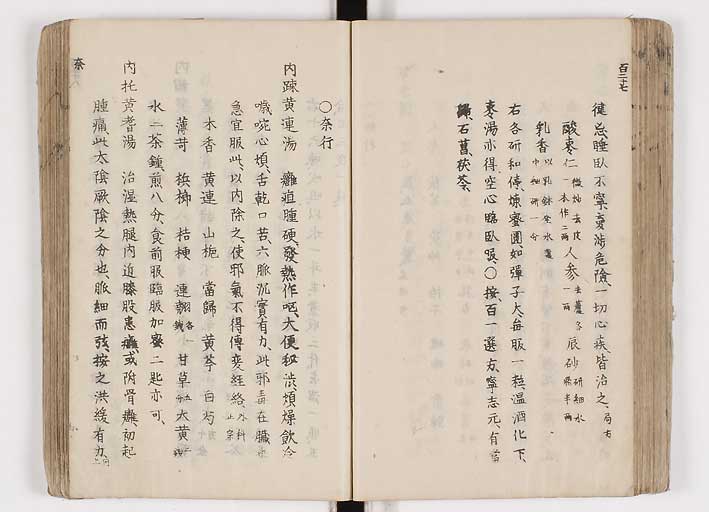 百二十七
健忘睡臥不寧、夢涉危險、一切心疾皆治之、局方
酸棗仁 微炒去皮 一本作二兩 人參 去蘆各一兩 辰砂 研細水飛半兩
乳香 以乳鉢坐水盆中細研一分
右各研和停、煉蜜圓、如彈子大、每服一粒、溫酒化下、
棗湯亦得、空心臨臥服、〇按、百一選方、寧志元、有當
歸、石菖、茯苓、
奈
〇奈行
內疎黃連湯 癰疽腫硬、發熱作嘔、大便秘澁、煩燥飲冷
噦啘心煩、舌乾口苦、六脈沉實有力、此邪毒在臟也
急宜服此、以內除之、使邪氣不得傳變經絡、外科正宗
木香 黃連 山梔 當歸 黃芩 白芍
薄苛 梹榔 桔梗 連翹 各 錢 甘草 大黃
水二茶鍾、煎八分、食前服、臨服加蜜二匙亦可、
內托黃耆湯 治湿熱腿內近膝股患癰、或附骨癰、初起
腫痛、此太陰厥陰之分也、脈細而弦、按之洪緩有力、